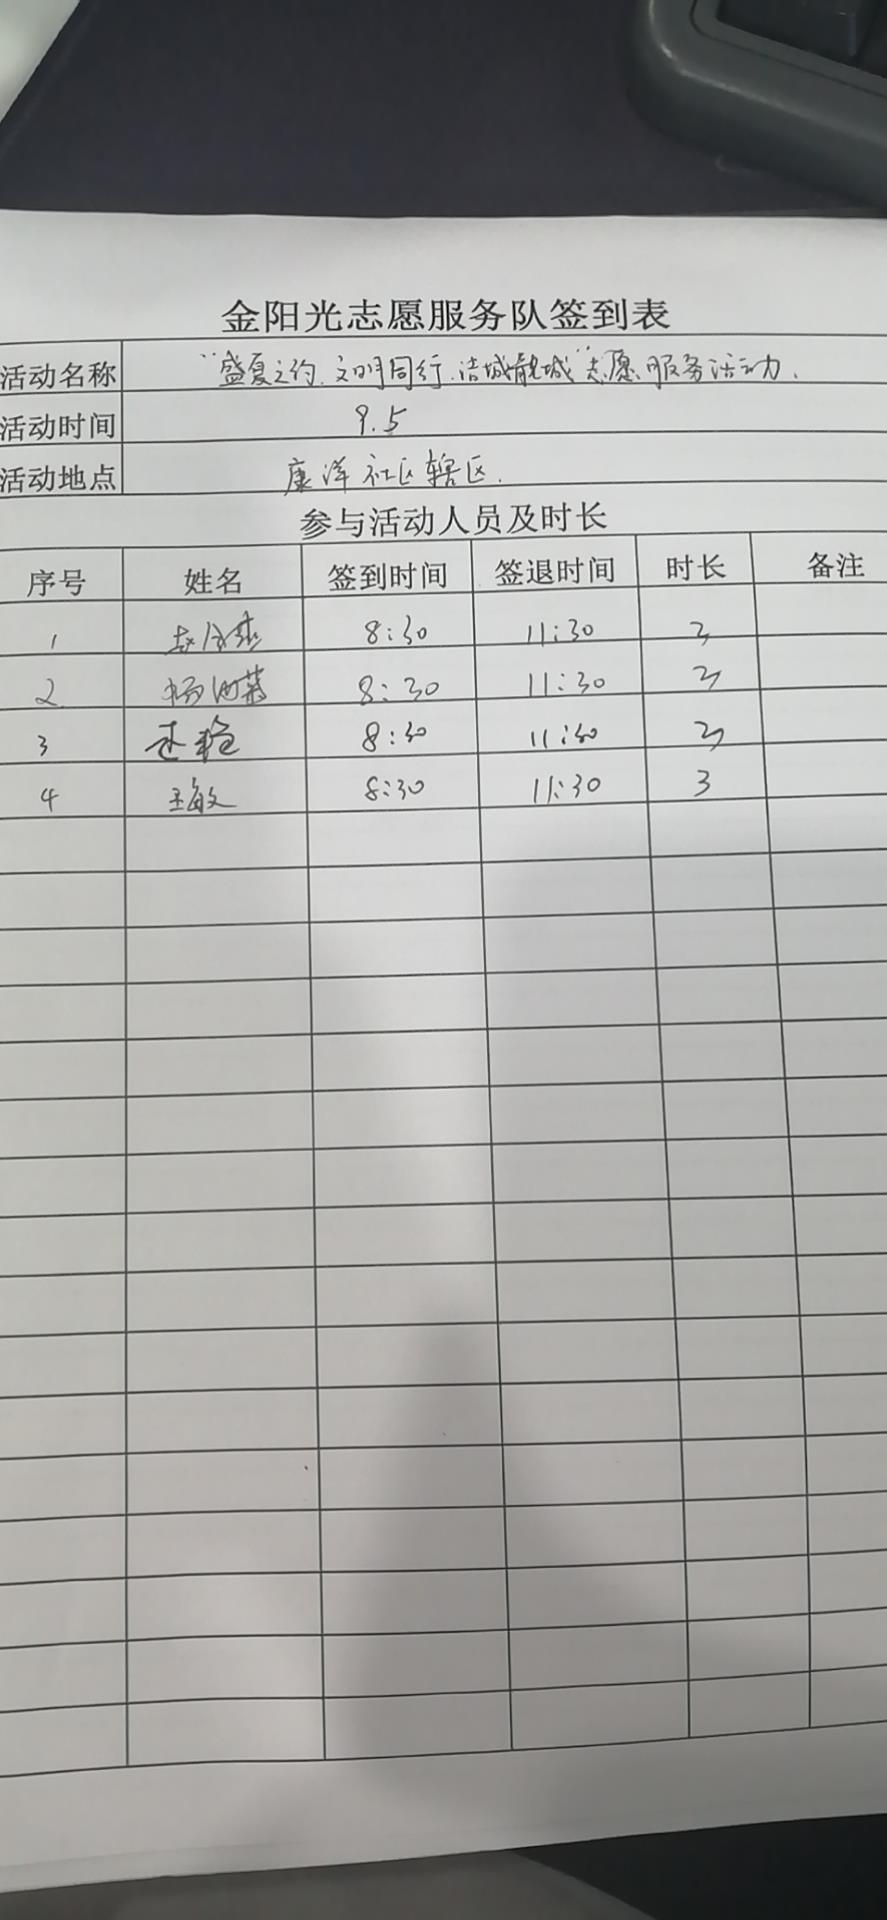 金阳光志愿服务队签到表
活动名称 “盛夏之约.文明同行.洁城靓城”志愿服务活动.
活动时间 9.5
活动地点 康洋社区辖区.
参与活动人员及时长
序号 姓名 签到时间 签退时间 时长 备注
1 8:30 11:30 3
2 8:30 11:30 3
3 8:30 11:30 3
4 王敏 8:30 11:30 3